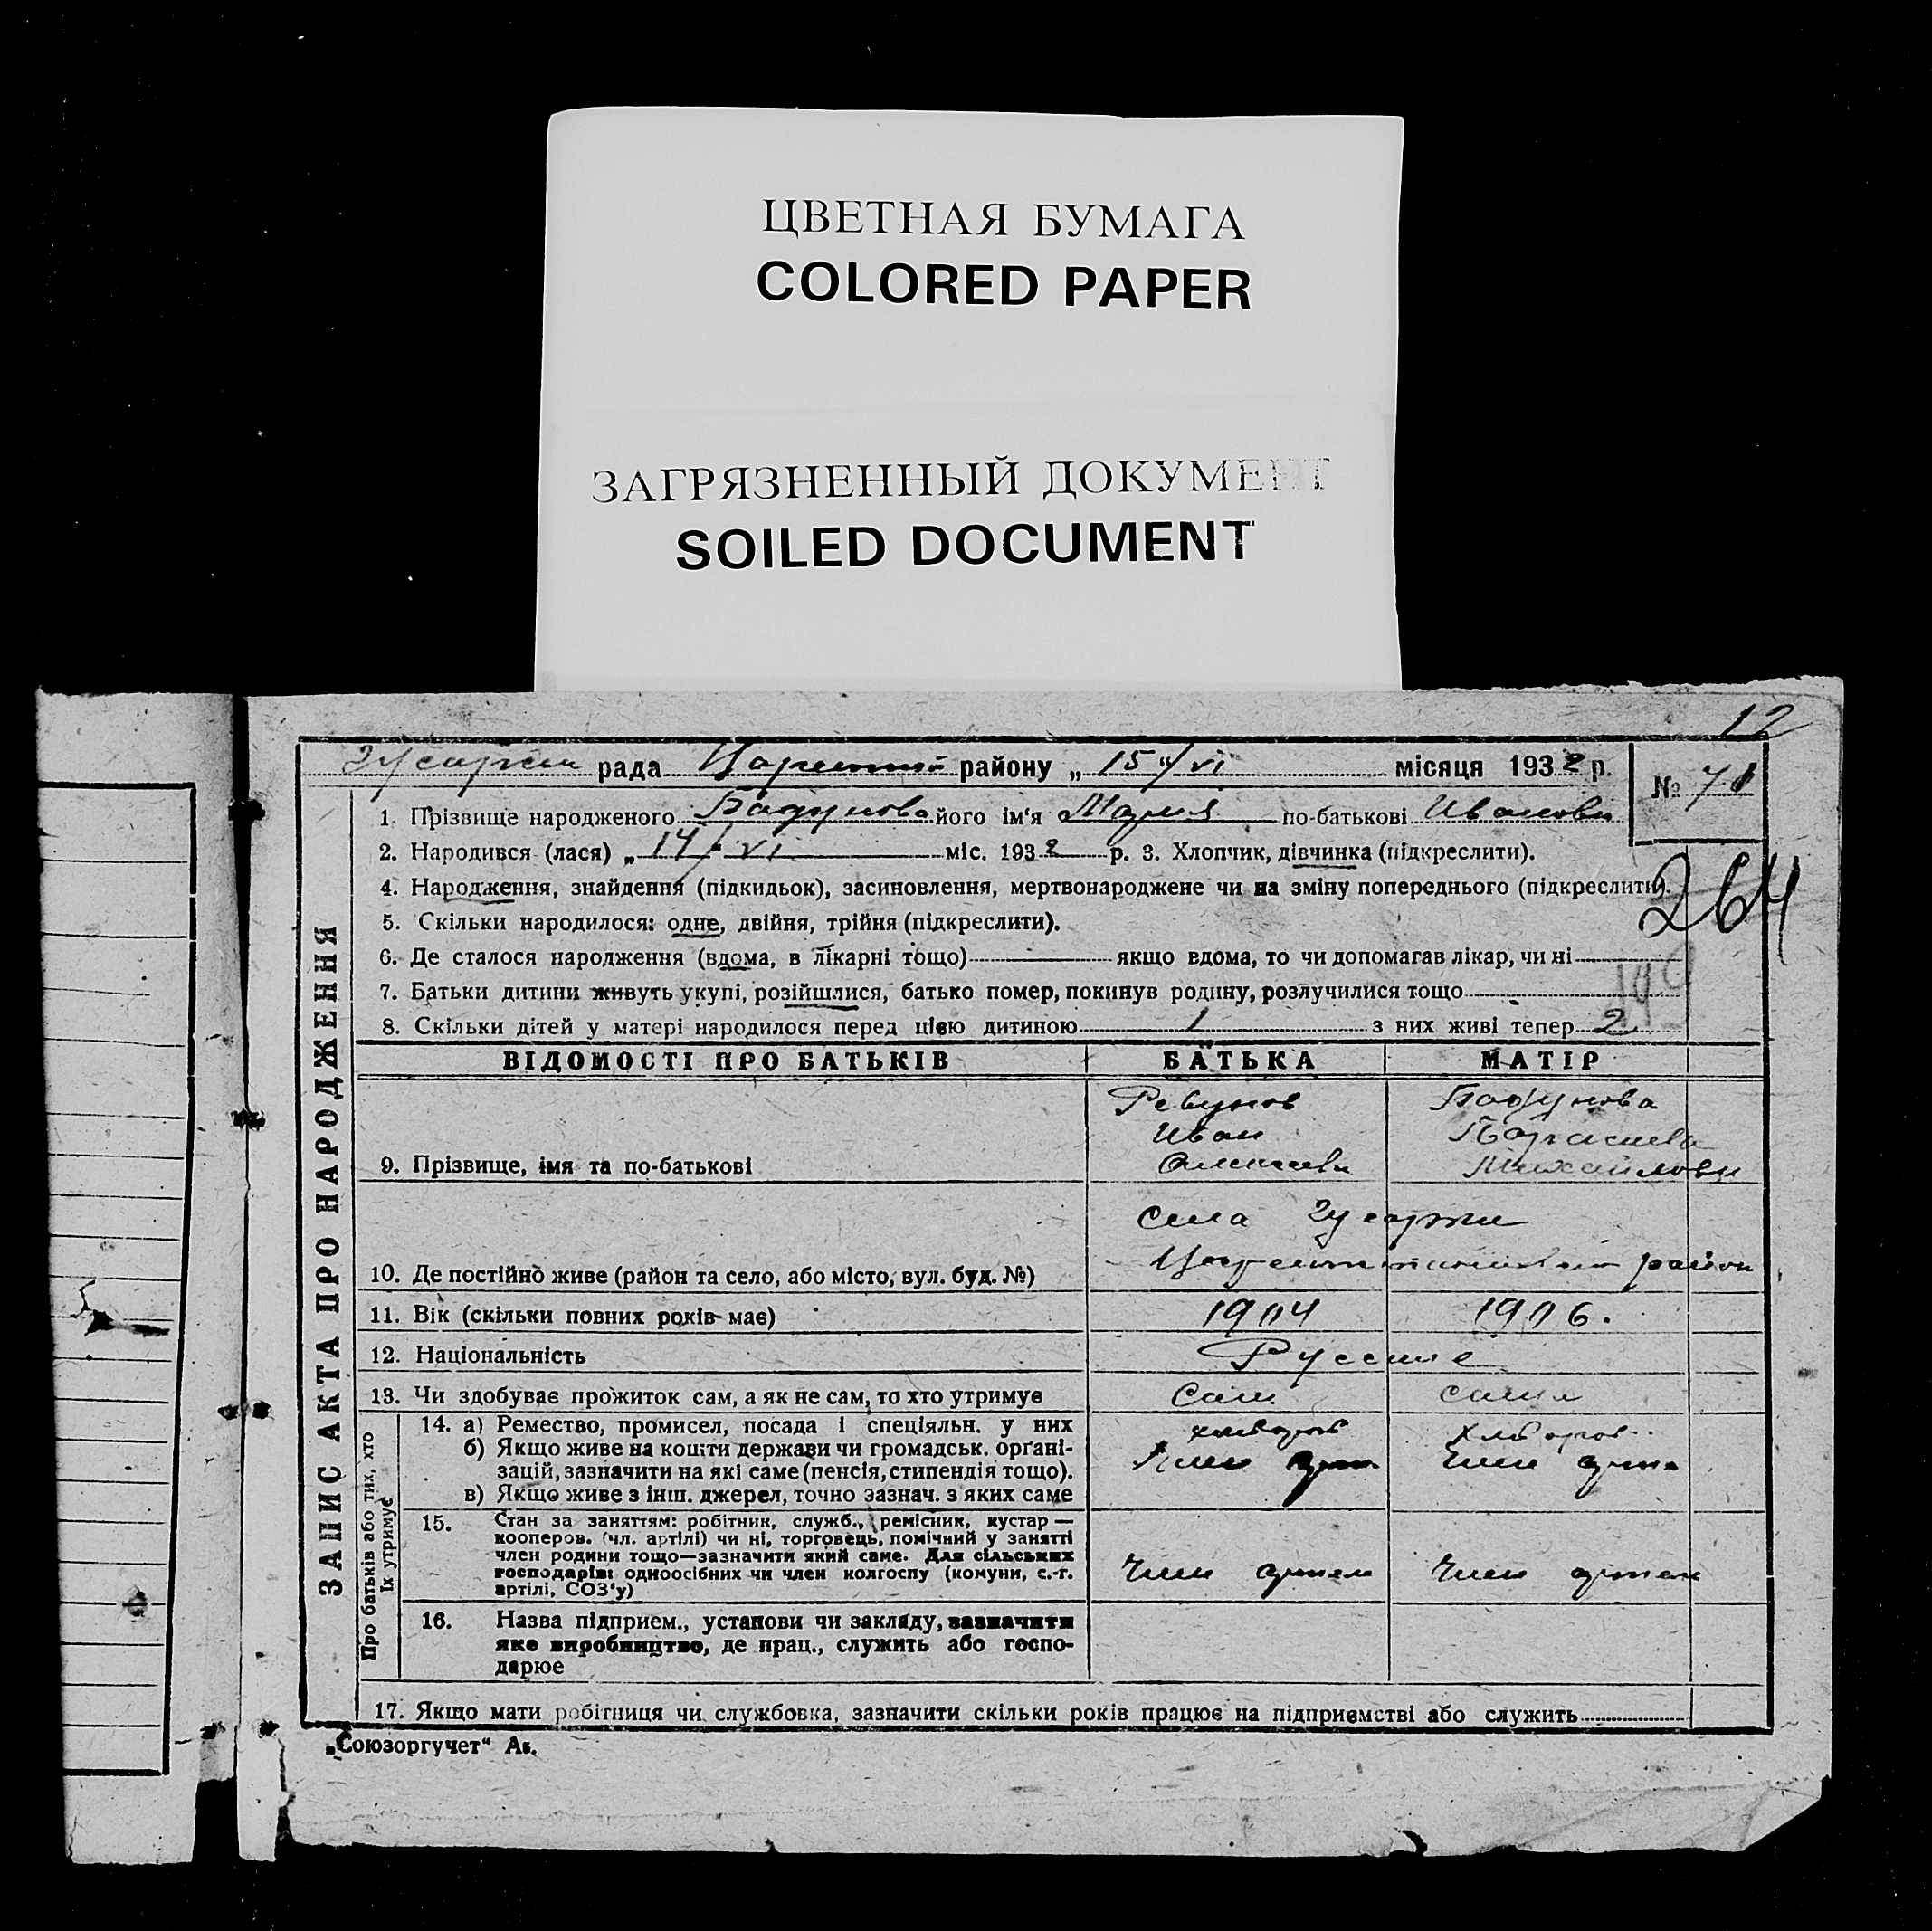 ЦВЕТНАЯ БУМАГА
COLORED PAPER
ЗАГРЯЗНЕННЫЙ ДОКУМЕНТ
SOILED DOCUMENT
12
рада району „ 15 "/VI місяця 1932 р.
№ 71
1. Прізвище народженого його ім'я Мария по-батькові Иванова
2. Народився (лася) „ 14/VI міс. 1932 р. 3. Хлопчик, дівчинка (підкреслити).
4. Народження, знайдення (підкидьок), засиновлення, мертвонароджене чи на зміну попереднього (підкреслити).
264
5. Скільки народилося: одне, двійня, трійня (підкреслити).
6. Де сталося народження (вдома, в лікарні тощо) якщо вдома, то чи допомагав лікар, чи ні
7. Батьки дитини живуть укупі, розійшлися, батько помер, покинув родину, розлучилися тощо
8. Скільки дітей у матері народилося перед цією дитиною 1 з них живі тепер 2
ЗАПИС АКТА ПРО НАРОДЖЕННЯ
ВІДОМОСТІ ПРО БАТЬКІВ БАТЬКА МАТІР
Ревунов
Иван
9. Прізвище, імя та по-батькові
села
район
10. Де постійно живе (район та село, або місто, вул. буд. №)
11. Вік (скільки повних років має) 1904 1906.
12. Національність Русские
13. Чи здобуває прожиток сам, а як не сам, то хто утримує Сам сама
Про батьків або тих, хто їх утримує
14. а) Ремество, промисел, посада і спеціяльн. у них
б) Якщо живе на кошти держави чи громадськ. орґані-
зацій, зазначити на які саме (пенсія, стипендія тощо).
в) Якщо живе з інш. джерел, точно зазнач. з яких саме
15. Стан за заняттям: робітник, служб., ремісник, кустар —
кооперов. (чл. артілі) чи ні, торговець, помічний у занятті
член родини тощо—зазначити який саме. Для сільських
господарів: одноосібних чи член колгоспу (комуни, с.-г.
артілі, СОЗ'у)
Член артели Член артели
16. Назва підприєм., установи чи закладу, зазначити
яке виробництво, де прац., служить або госпо-
дарює
17. Якщо мати робітниця чи службовка, зазначити скільки років працює на підприємстві або служить
„Союзоргучет" Ак.